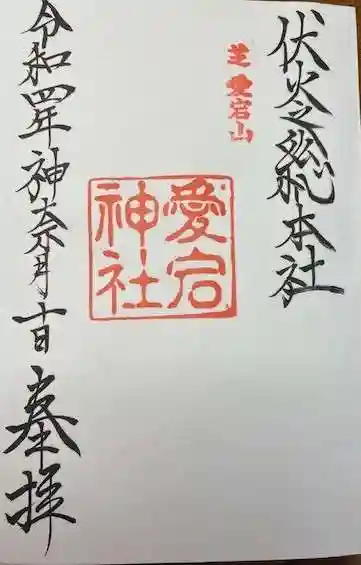 伏火之総本社
芝 愛宕山
愛宕
神社
令和四年神奈月十日
参拝